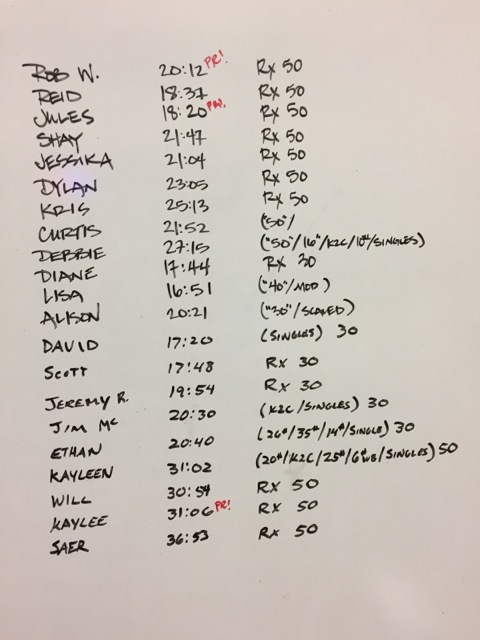 ROB W. 20:12 PR! RX 50
REID 18:37 RX 50
JULES 18:20 PR! RX 50
SHAY 21:47 RX 50
JESSIKA 21:04 RX 50
DYLAN 23:05 RX 50
KRIS 25:13 RX 50
CURTIS 21:52 ("50"/
DEBBIE 27:15 ("50"/16"/K2C/10#/SINGLES)
DIANE 17:44 RX 30
LISA 16:51 ("40"/MOD)
ALISON 20:21 ("30"/SCALED)
DAVID 17:20 (SINGLES) 30
SCOTT 17:48 RX 30
JEREMY R. 19:54 RX 30
JIM MC 20:30 (K2C/SINGLES) 30
ETHAN 20:40 (26#/35#/14#/SINGLE) 30
KAYLEEN 31:02 (20#/K2C/25#/6#WB/SINGLES) 50
WILL 30:54 RX 50
KAYLEE 31:06 PR! RX 50
SAER 36:53 RX 50